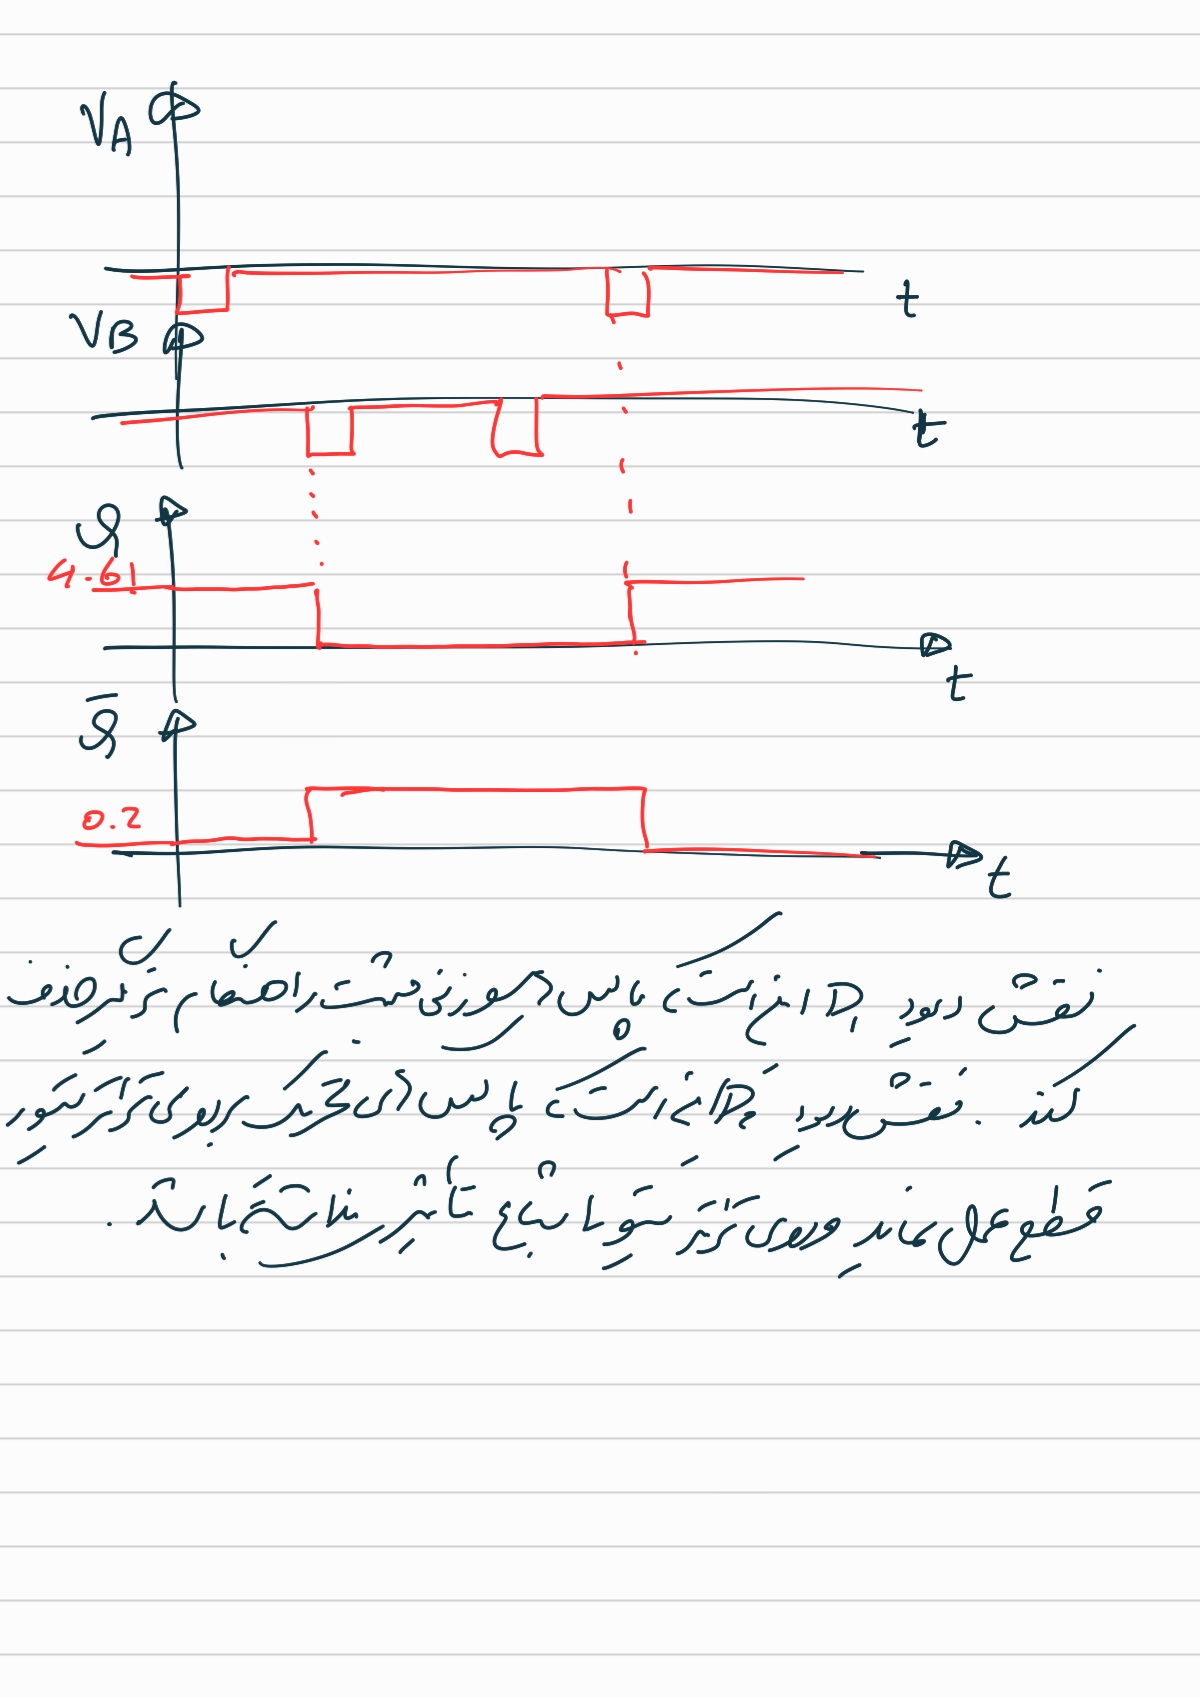 VA
t
VB
t
Q
4.61
t
Q̄
0.2
t
نقش دیود D₁ این است که پالس های سوزنی مثبت را حذف
کند. نقش دیود این است که پالس های تحریک بر روی ترانزیستور
قطع عمل نماید و روی ترانزیستور اشباع تاثیر نداشته باشد.